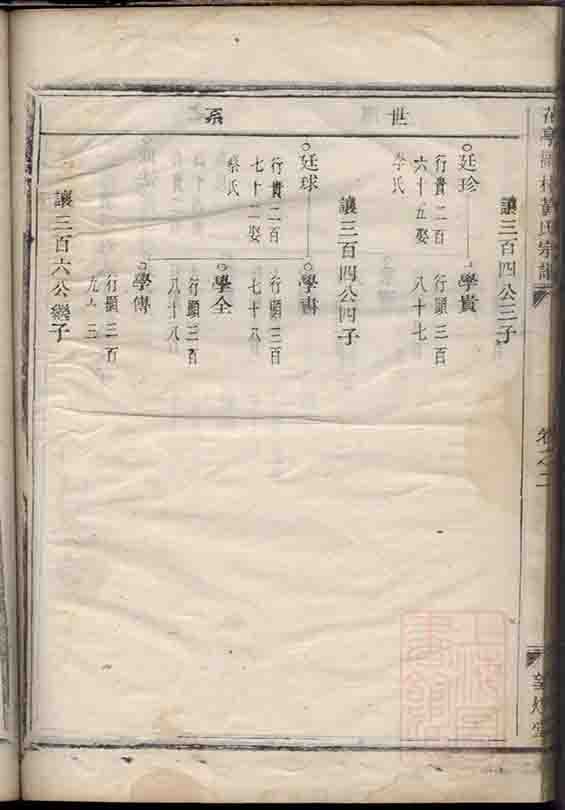 世系
讓三百四公三子
廷珍
行貴二百
六十五娶
李氏
學貴
行顯三百
八十七
讓三百四公四子
廷球
行貴二百
七十二娶
蔡氏
學書
行顯三百
七十八
學全
行顯三百
八十八
學傳
行顯三百
九十三
讓三百六公繼子
黃氏宗譜
卷之二